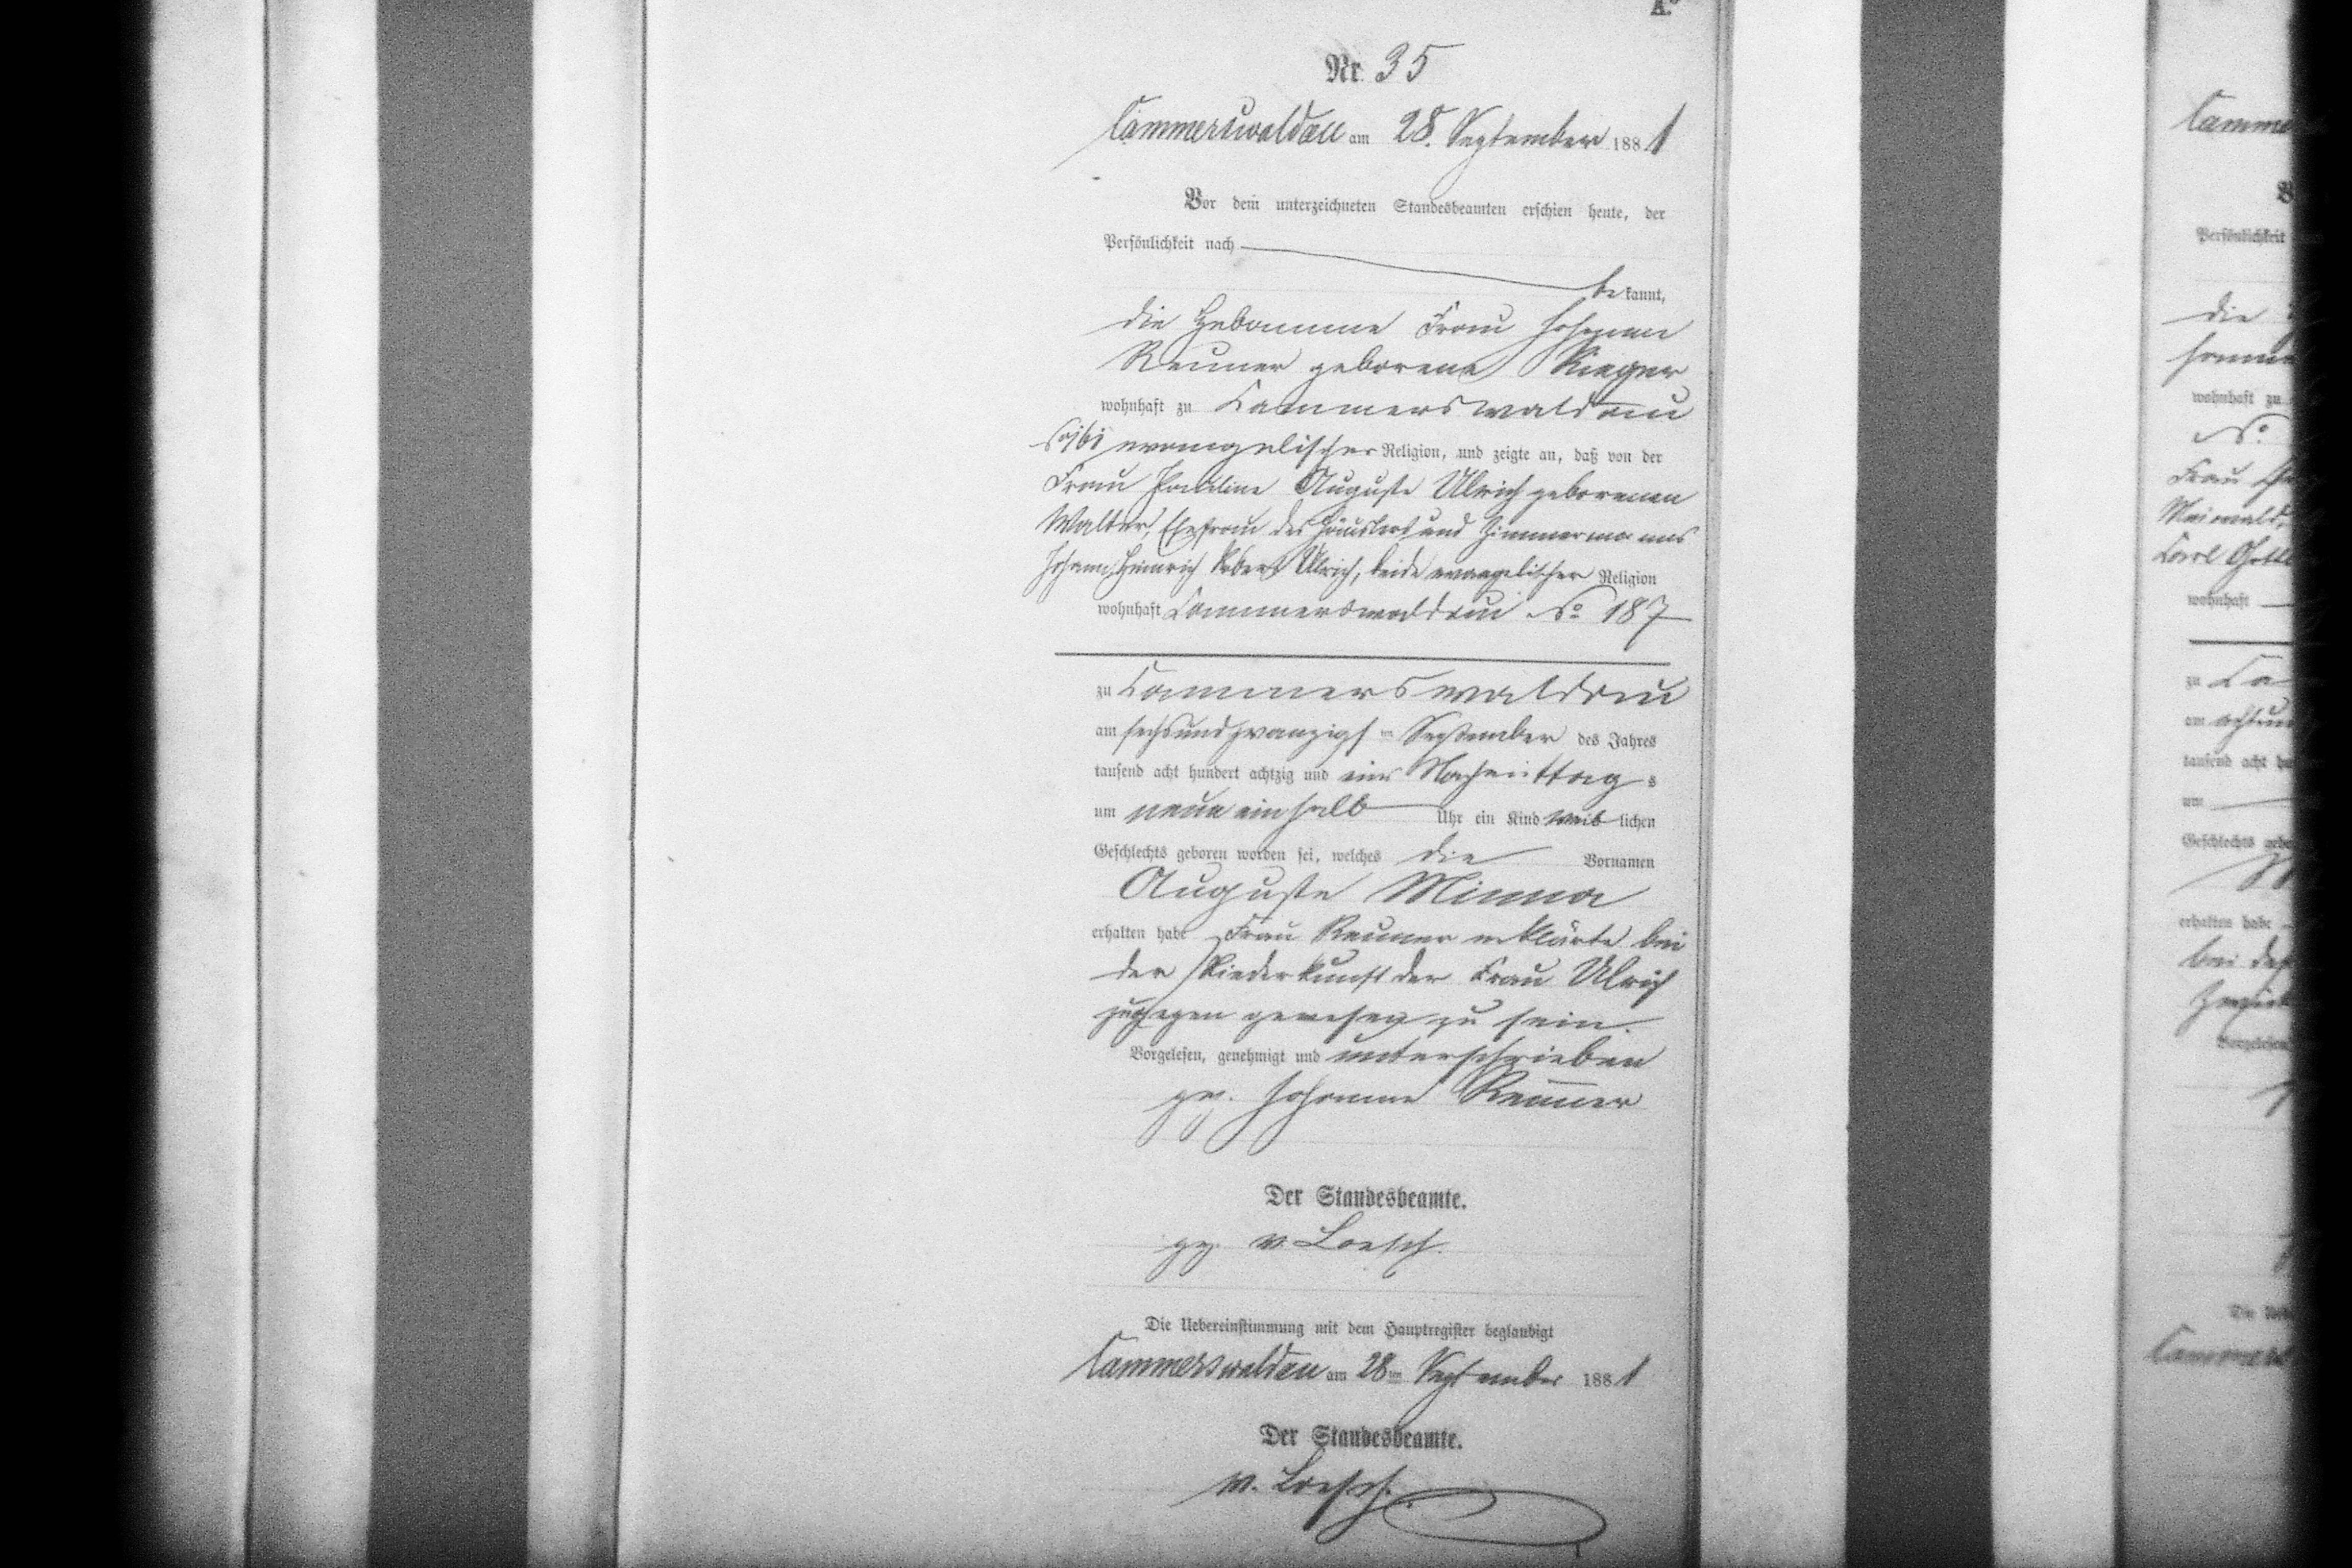 A.
Nr. 35
Cammerswaldau am 28. September 1881
Vor dem unterzeichneten Standesbeamten erschien heute, der
Persönlichkeit nach
bekannt,
die Hebamme Frau Johanne
Reuner geborene Rieger
wohnhaft zu Cammerswaldau
evangelischer Religion, und zeigte an, daß von der
Frau Pauline Auguste Ulrich geborenen
Walter, Ehefrau des Häuslers und Zimmermanns
Johann Heinrich Robert Ulrich, beide evangelischer Religion
wohnhaft Cammerswaldau No 187
zu Cammerswaldau
am sechsundzwanzigsten September des Jahres
tausend acht hundert achtzig und eins Nachmittags
um neun einhalb Uhr ein Kind weiblichen
Geschlechts geboren worden sei, welches die Vornamen
Auguste Minna
erhalten habe Frau Reuner erklärte bei
der Niederkunft der Frau Ulrich
zugegen gewesen zu sein.
Vorgelesen, genehmigt und unterschrieben
gez. Johanne Reuner
Der Standesbeamte.
gez. v. Loesch.
Die Uebereinstimmung mit dem Hauptregister beglaubigt
Cammerswaldau am 28ten September 1881
Der Standesbeamte.
v. Loesch.
Camme
Persönlichkeit
die
wohnhaft zu
No
Frau
Maiwald,
Carl
wohnhaft
zu Ca
am
tausend acht hu
um
Geschlechts
erhalten habe
bei der
Vorgelesen,
Die
Cammers